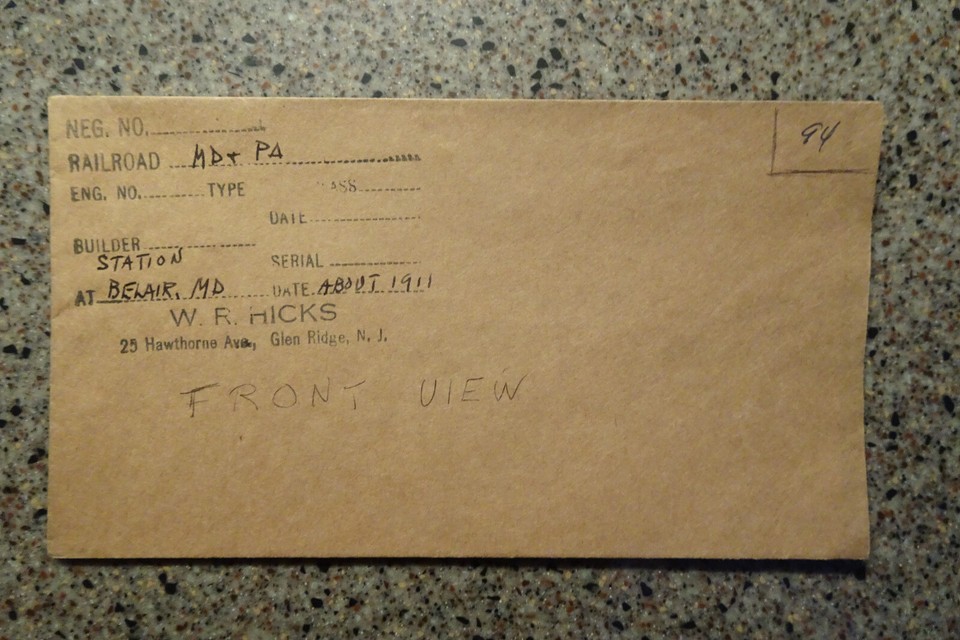 NEG. NO.
94
RAILROAD MD + PA
ENG. NO. TYPE CLASS
DATE
BUILDER
STATION SERIAL
AT BELAIR, MD DATE ABOUT 1911
W. R. HICKS
25 Hawthorne Ave., Glen Ridge, N. J.
FRONT VIEW